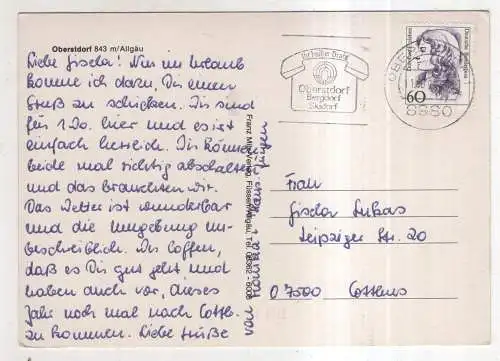 Oberstdorf 843 m/Allgäu
Liebe Gisela! Nur im Urlaub
komme ich dazu, Dir einen
Gruß zu schicken. Wir sind
für 1 Wo. hier und es ist
einfach herrlich. Wir können
beide mal richtig abschalten
und das brauchten wir.
Das Wetter ist wunderbar
und die Umgebung un-
beschreiblich. Wir hoffen,
daß es Dir gut geht und
haben auch vor, dieses
Jahr noch mal nach Cottb.
zu kommen. Liebe Grüße
von Monika u. Hans-Jürgen
Franz Milz Verlag, Füssen/Allgäu, Tel. 08362
Ihr heißer Draht
Oberstdorf
Bergdorf
Skidorf
Deutsche Bundespost
60
8980
Frau
Gisela Lukas
Leipziger Str. 20
O 7500 Cottbus